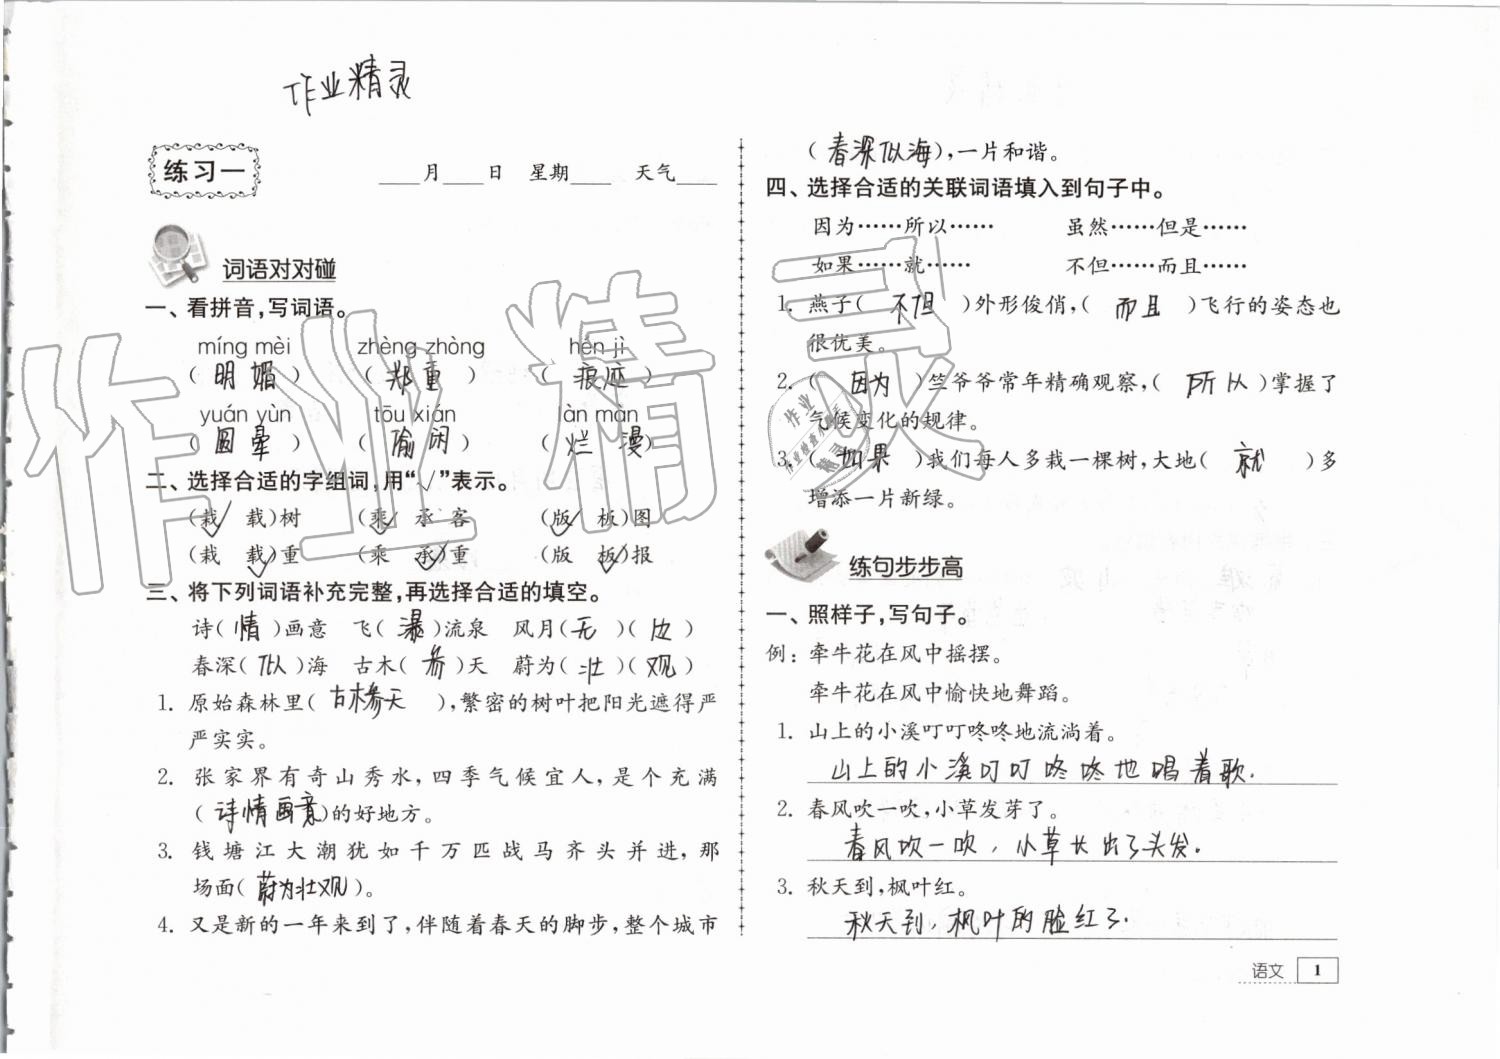 作业精灵
练习一
____月____日 星期____ 天气____
词语对对碰
一、看拼音,写词语。
míng mèi zhèng zhòng hén jì
(明媚) (郑重) (痕迹)
yuán yùn tōu xián làn màn
(圆晕) (偷闲) (烂漫)
二、选择合适的字组词,用“√”表示。
(栽√ 载)树 (乘√ 承)客 (版√ 板)图
(栽 载√)重 (乘 承√)重 (版 板√)报
三、将下列词语补充完整,再选择合适的填空。
诗(情)画意 飞(瀑)流泉 风月(无)(边)
春深(似)海 古木(参)天 蔚为(壮)(观)
1. 原始森林里(古木参天),繁密的树叶把阳光遮得严
严实实。
2. 张家界有奇山秀水,四季气候宜人,是个充满
(诗情画意)的好地方。
3. 钱塘江大潮犹如千万匹战马齐头并进,那
场面(蔚为壮观)。
4. 又是新的一年来到了,伴随着春天的脚步,整个城市
(春深似海),一片和谐。
四、选择合适的关联词语填入到句子中。
因为……所以…… 虽然……但是……
如果……就…… 不但……而且……
1. 燕子(不但)外形俊俏,(而且)飞行的姿态也
很优美。
2. (因为)竺爷爷常年精确观察,(所以)掌握了
气候变化的规律。
3. (如果)我们每人多栽一棵树,大地(就)多
增添一片新绿。
练句步步高
一、照样子,写句子。
例:牵牛花在风中摇摆。
牵牛花在风中愉快地舞蹈。
1. 山上的小溪叮叮咚咚地流淌着。
山上的小溪叮叮咚咚地唱着歌.
2. 春风吹一吹,小草发芽了。
春风吹一吹,小草长出了头发.
3. 秋天到,枫叶红。
秋天到,枫叶的脸红了.
语文 1
作业精灵